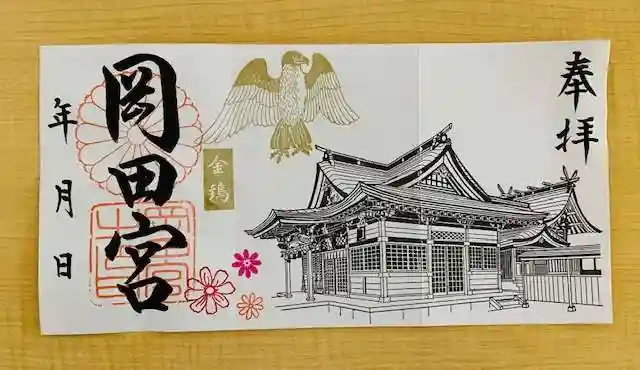 奉拝
金鵄
岡田宮
年 月 日